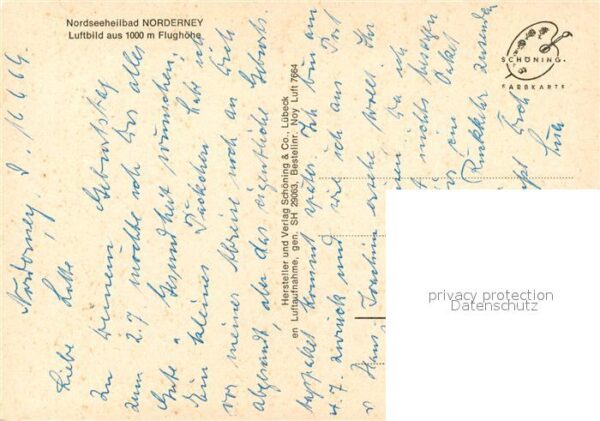 Nordseeheilbad NORDERNEY
Luftbild aus 1000 m Flughöhe
SCHÖNING.
FARBKARTE
Hersteller und Verlag Schöning & Co., Lübeck
en Luftaufnahme, gen. SH 29063, Bestellnr. Noy Luft 7664
Norderney, d. 16.6.69.
Liebe Lotte
zu Deinem Geburtstag
zum 2.7 möchte ich Dir alles
Gute u. Gesundheit wünschen.
Ein kleines Päckchen habe ich
vor meiner Abreise noch an Dich
abgesandt, aber das eigentliche Geburts-
tagspaket kommt später. Ich bin am
4.7. zurück und wie ich aus
u. Hans Joachim
Da ich
nichts besorgen
Paket
Rückkehr zusenden
Dich
privacy protection
Datenschutz